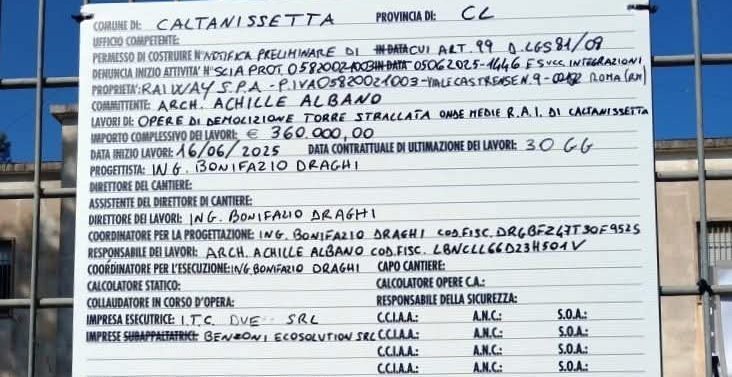 COMUNE DI: CALTANISSETTA PROVINCIA DI: CL
UFFICIO COMPETENTE:
PERMESSO DI COSTRUIRE N° NOTIFICA PRELIMINARE DI IN DATA CUI ART. 99 D.LGS 81/08
DENUNCIA INIZIO ATTIVITA' N° SCIA PROT. 05820021003 IN DATA 05062025-1446 E SUCC INTEGRAZIONI
PROPRIETA': RAI WAY S.P.A - P.IVA 05820021003 - VIALE CASTRENSE N. 9 - ROMA (RM)
COMMITTENTE: ARCH. ACHILLE ALBANO
LAVORI DI: OPERE DI DEMOLIZIONE TORRE STRALLATA ONDE MEDIE R.A.I. DI CALTANISSETTA
IMPORTO COMPLESSIVO DEI LAVORI: € 360.000,00
DATA INIZIO LAVORI: 16/06/2025 DATA CONTRATTUALE DI ULTIMAZIONE DEI LAVORI: 30 GG
PROGETTISTA: ING. BONIFAZIO DRAGHI
DIRETTORE DEL CANTIERE:
ASSISTENTE DEL DIRETTORE DI CANTIERE:
DIRETTORE DEI LAVORI: ING. BONIFAZIO DRAGHI
COORDINATORE PER LA PROGETTAZIONE: ING. BONIFAZIO DRAGHI COD.FISC. DRGBFZ47T30F952S
RESPONSABILE DEI LAVORI: ARCH. ACHILLE ALBANO COD.FISC. LBNCLL66D23H501V
COORDINATORE PER L'ESECUZIONE: ING. BONIFAZIO DRAGHI CAPO CANTIERE:
CALCOLATORE STATICO: CALCOLATORE OPERE C.A.:
COLLAUDATORE IN CORSO D'OPERA: RESPONSABILE DELLA SICUREZZA:
IMPRESA ESECUTRICE: I.T.C. DUE SRL C.C.I.A.A.: A.N.C.: S.O.A.:
IMPRESE SUBAPPALTATRICI: BENZONI ECOSOLUTION SRL C.C.I.A.A.: A.N.C.: S.O.A.:
C.C.I.A.A.: A.N.C.: S.O.A.:
C.C.I.A.A.: A.N.C.: S.O.A.: